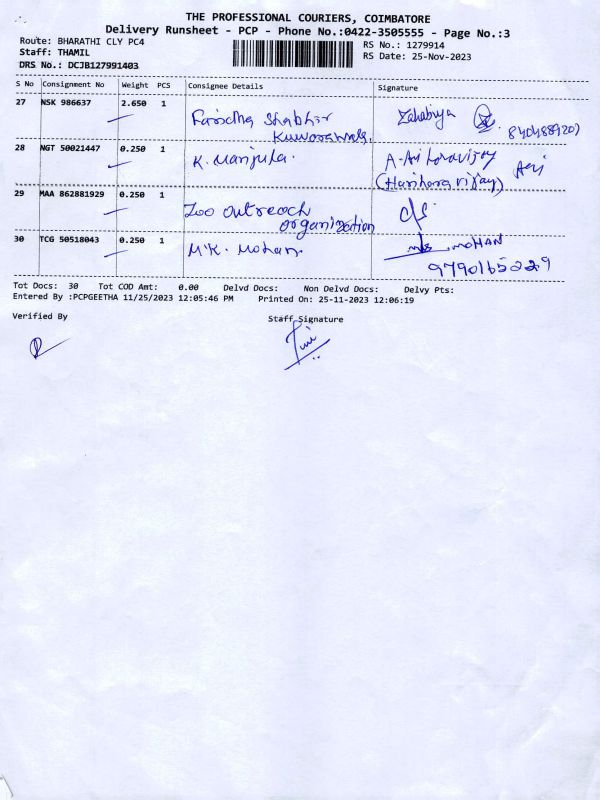 THE PROFESSIONAL COURIERS, COIMBATORE
Delivery Runsheet - PCP - Phone No.:0422-3505555 - Page No.:3
Route: BHARATHI CLY PC4
Staff: THAMIL
DRS No.: DCJB127991403
RS No.: 1279914
RS Date: 25-Nov-2023
S No Consignment No Weight PCS Consignee Details Signature
27 NSK 986637 2.650 1 Faridha Shabbir Zahabiya
28 NGT 50021447 0.250 1 K. Manjula.
(Harihara vijay)
29 MAA 862881929 0.250 1 Zoo outreach
organization
30 TCG 50518043 0.250 1 M.K. Mohan. MOHAN
9790165229
Tot Docs: 30 Tot COD Amt: 0.00 Delvd Docs: Non Delvd Docs: Delvy Pts:
Entered By :PCPGEETHA 11/25/2023 12:05:46 PM Printed On: 25-11-2023 12:06:19
Verified By Staff Signature